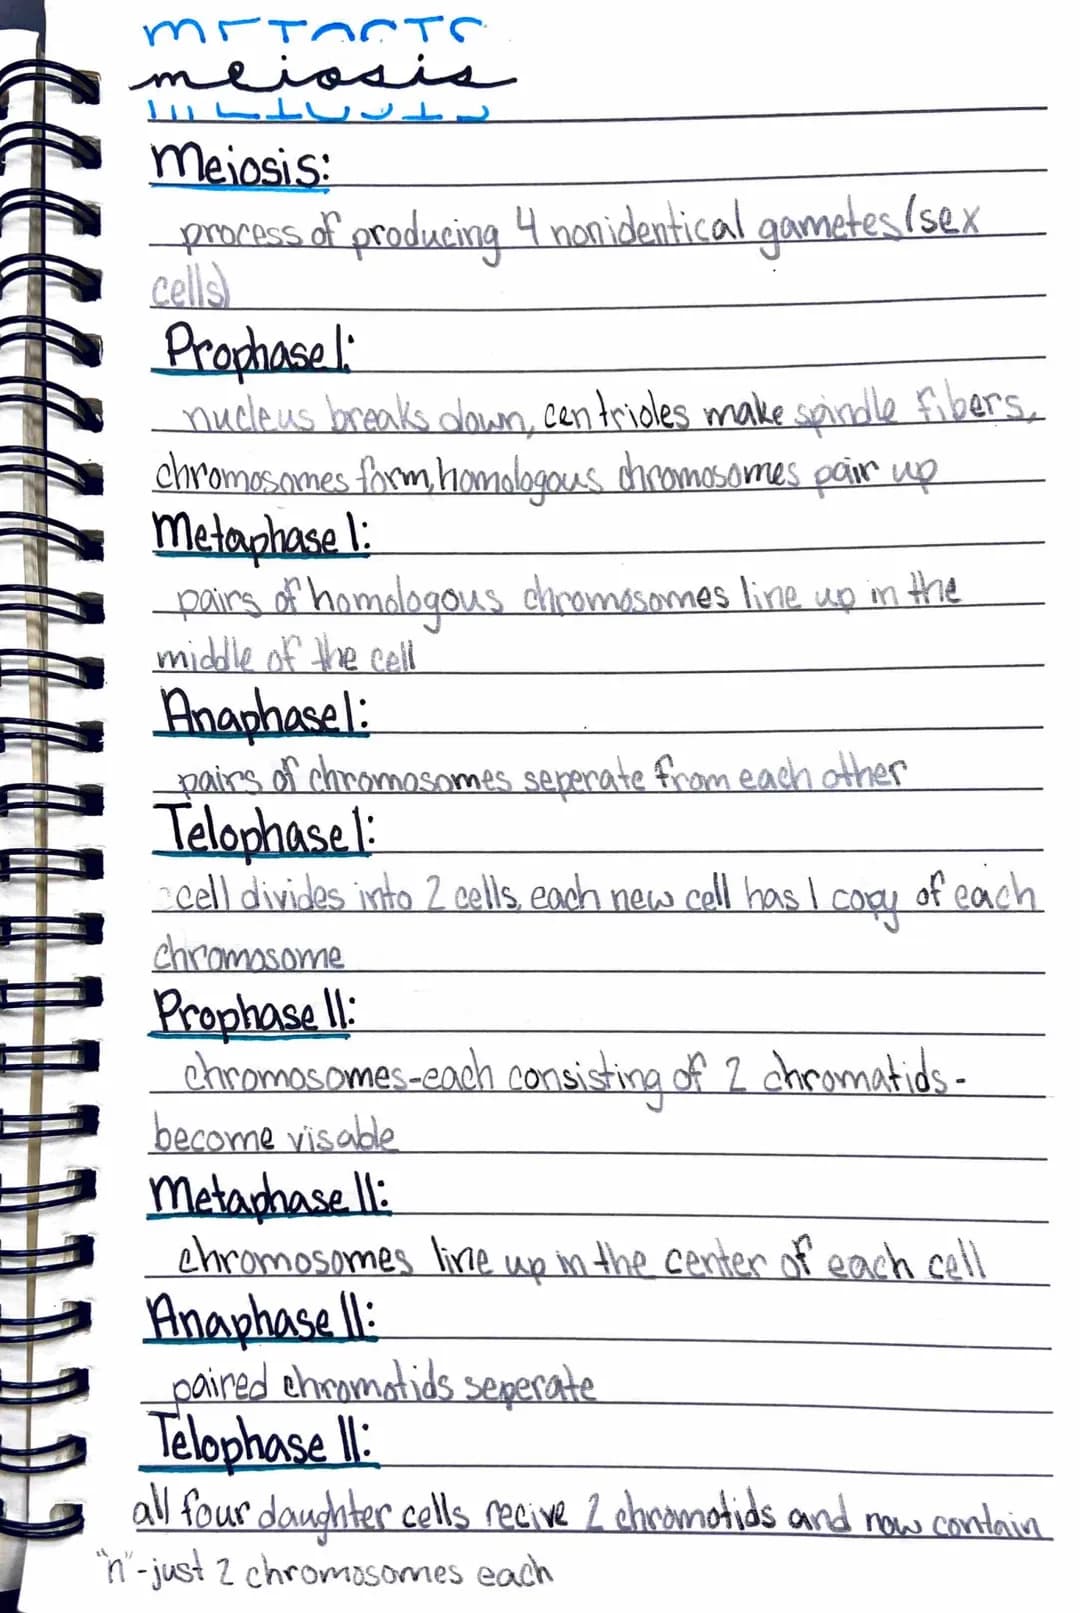 meiosis
Meiosis:
process of producing 4 nonidentical gametes (sex
cells)
Prophase I:
nucleus breaks down, centrioles make spindle fibers,
chromosomes form, homologous chromosomes pair up
Metaphase I:
pairs of homologous chromosomes line up in the
middle of the cell
Anaphase I:
pairs of chromosomes seperate from each other
Telophase I:
cell divides into 2 cells, each new cell has 1 copy of each
chromosome
Prophase II:
chromosomes-each consisting of 2 chromatids-
become visable
Metaphase II:
chromosomes line up in the center of each cell
Anaphase II:
paired chromotids seperate
Telophase II:
all four daughter cells recive 2 chromotids and now contain
"n"-just 2 chromosomes each